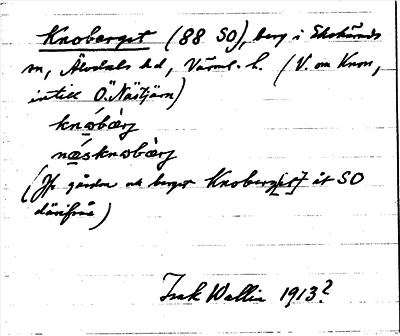 Knoberget (88 SO), berg i Ekshärads
sn, Älvdals hd, Värml. l. (V. om Knon,
intill Ö. Nästjärn)
knɷ́bæ̀rj
næ̀sknɷbæ̀rj
(Jfr gården och berget Knoberg[et] åt SO
därifrån)
Isak Wallin 1913?